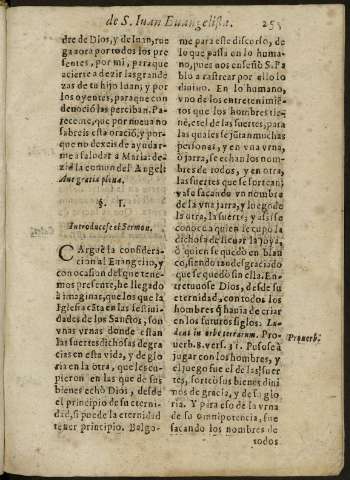 de S. Iuan Euangelista. 255
dre de Dios, y de Iuan, rue
ga aora por todos los pre
sentes, por mi, para que
acierte a dezir las grande
zas de tu hijo Iuan; y por
los oyentes, para que con
deuociō las perciban. Pa-
receme, que por nueua no
sabreis esta oració, y por-
que no dexeis de ayudar-
me a saludar a Maria: de-
zid la comun del Angel:
Aue gratia plena.
§. I.
Introducese el Sermon.
CArguè la considera-
cion al Euangelio, y
con ocasion del que tene-
mos presente, he llegado
à imaginar, que los que la
Iglesia cāta en las festiui-
dades de los Santos, son
vnas vrnas donde estan
las suertes dichosas de gra
cia en esta vida, y de glo
ria en la otra, que les cu-
pieron en las que de sus
bienes echò Dios, desde
el principio de su eterni-
dad, si puede la eternidad
tener principio. Valgo-
me para este discurso, de
lo que passa en lo huma-
no, pues nos enseñó S. Pa
blo a rastrear por ello lo
diuino. En lo humano,
vno de los entretenimiē-
tos que los hombres tie-
nē, es el de las suertes, para
las quales se jūtan muchas
personas, y en vna vrna,
ò jarra, se echan los nom-
bres de todos, y en otra,
las suertes que se sortean;
y assi sacando vn nombre
de la vna jarra, y luego de
la otra, la suerte; y assi se
conoce a quien se cupo la
dichosa de lleuar la joya,
ò quien se quedò en blan
co, siendo tan desgraciado
que se quedò sin ella. En-
tretuuose Dios, desde su
eternidad, con todos los
hombres q̄ hauia de criar
en los futuros siglos. Lu-
dens in orbe terrarum. Pro-
uerb. 8. vers. 31. Pusose à
jugar con los hombres, y
el juego fue el de las suer
tes, sorteò sus bienes diui
nos de gracia, y de su glo
ria. Y para esso de la vrna
de su omnipotencia, fue
sacando los nombres de
todos
Prouerb.